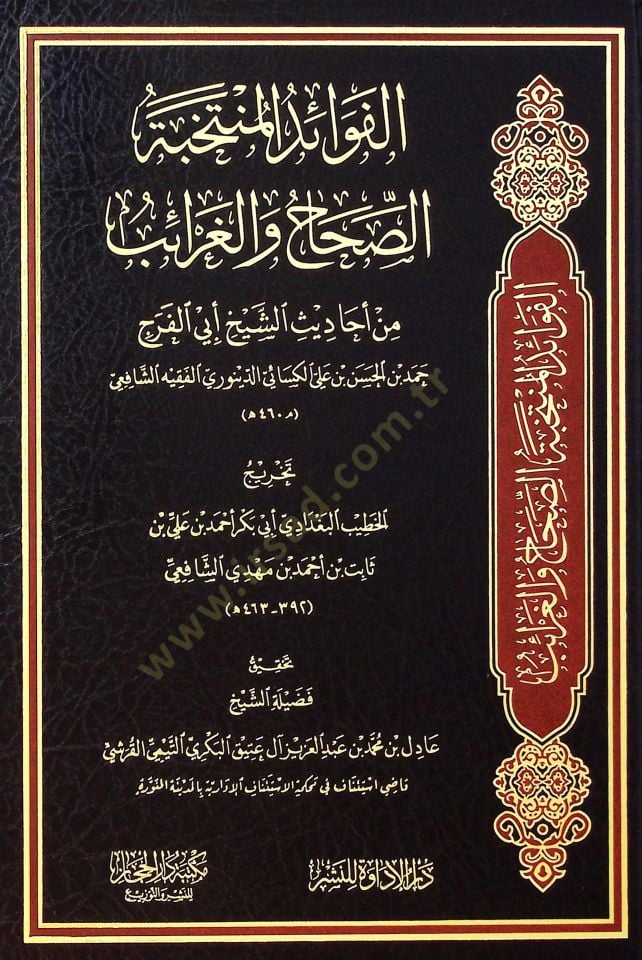 الفَوَائِدُ المُنْتَخَبَةُ
الصِّحَاحُ وَالغَرَائِبُ
مِنْ أَحَادِيثِ الشَّيْخِ أَبِي الفَرَجِ
حَمَدِ بْنِ الحَسَنِ بْنِ عَلِيِّ الكِسَائِيِّ الدِّينَوَرِيِّ الفَقِيهِ الشَّافِعِيِّ
(م٤٦٠هـ)
تَخْرِيجُ
الخَطِيبِ البَغْدَادِيِّ أَبِي بَكْرٍ أَحْمَدَ بْنِ عَلِيِّ بْنِ
ثَابِتِ بْنِ أَحْمَدَ بْنِ مَهْدِيٍّ الشَّافِعِيِّ
(٣٩٢-٤٦٣هـ)
تَحْقِيقُ
فَضِيلَةِ الشَّيْخِ
عَادِلِ بْنِ مُحَمَّدِ بْنِ عَبْدِ العَزِيزِ آلِ عَتِيقٍ البَكْرِيِّ التَّيْمِيِّ القُرَشِيِّ
قَاضِي اسْتِئْنَافٍ فِي مَحْكَمَةِ الاسْتِئْنَافِ الإِدَارِيَّةِ بِالمَدِينَةِ المُنَوَّرَةِ
دَارُ الإِدَاوَةِ لِلنَّشْرِ
مكتبة دار الحجاز
للنشر والتوزيع
الفَوَائِدُ المُنْتَخَبَةُ الصِّحَاحُ وَالغَرَائِبُ
www.irsad.com.tr